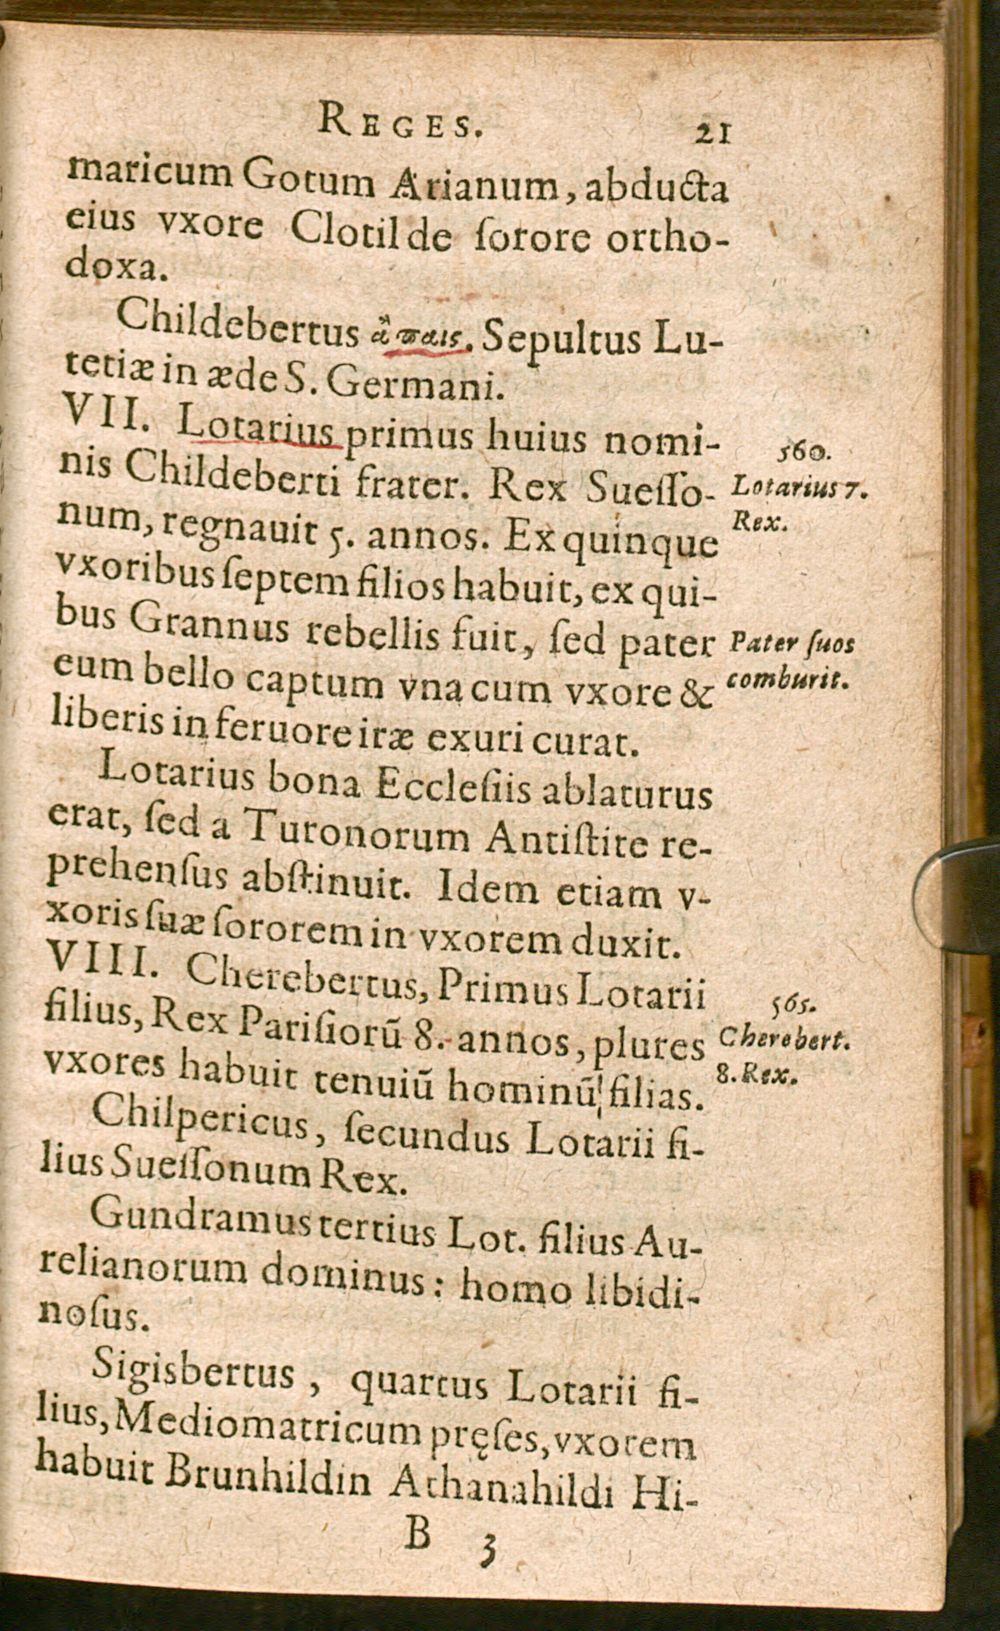 REGES. 21
maricum Gotum Arianum, abducta
eius vxore Clotilde ſorore ortho-
doxa.
Childebertus ἄπαις. Sepultus Lu-
tetiæ in æde S. Germani.
VII. Lotarius primus huius nomi-
nis Childeberti frater. Rex Sueſſo-
num, regnauit 5. annos. Ex quinque
vxoribus ſeptem filios habuit, ex qui-
bus Grannus rebellis fuit, ſed pater
eum bello captum vna cum vxore &
liberis in feruore iræ exuri curat.
Lotarius bona Eccleſiis ablaturus
erat, ſed a Turonorum Antiſtite re-
prehenſus abſtinuit. Idem etiam v-
xoris ſuæ ſororem in vxorem duxit.
VIII. Cherebertus, Primus Lotarii
filius, Rex Pariſiorū 8. annos, plures
vxores habuit tenuiū hominū filias.
Chilpericus, ſecundus Lotarii fi-
lius Sueſſonum Rex.
Gundramus tertius Lot. filius Au-
relianorum dominus: homo libidi-
noſus.
Sigisbertus, quartus Lotarii fi-
lius, Mediomatricum pręſes, vxorem
habuit Brunhildin Athanahildi Hi-
B 3
560.
Lotarius 7.
Rex.
Pater ſuos
comburit.
565.
Cherebert.
8. Rex.